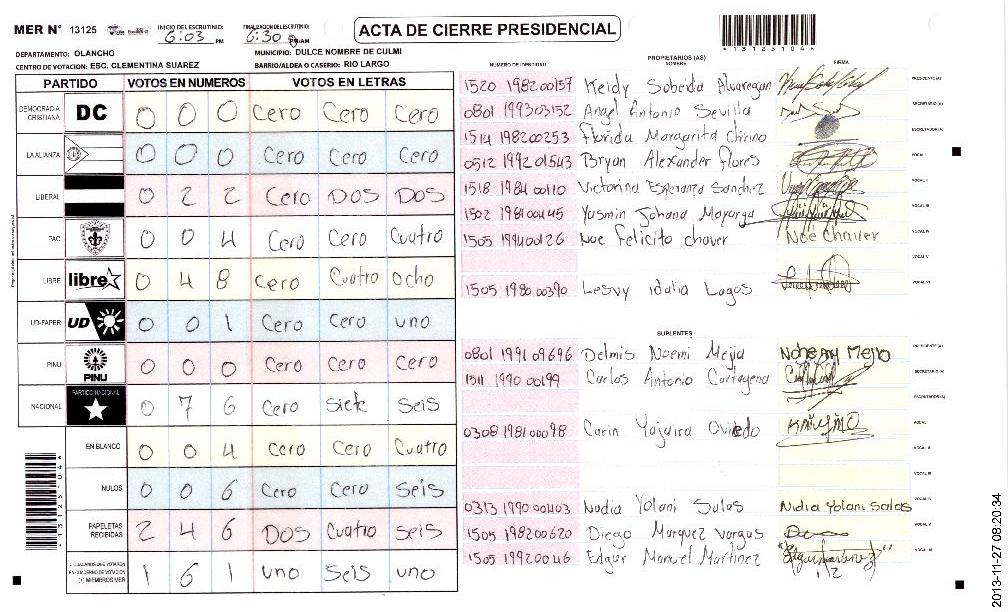 MER N° 13125 INICIO DEL ESCRUTINIO: 6:03 PM FINALIZACION DEL ESCRUTINIO: 6:30 PM/AM ACTA DE CIERRE PRESIDENCIAL
*13125104*
DEPARTAMENTO: OLANCHO MUNICIPIO: DULCE NOMBRE DE CULMI
CENTRO DE VOTACION: ESC. CLEMENTINA SUAREZ BARRIO/ALDEA O CASERIO: RIO LARGO
PARTIDO VOTOS EN NUMEROS VOTOS EN LETRAS
DEMOCRACIA CRISTIANA DC 0 0 0 Cero Cero Cero
LA ALIANZA 0 0 0 Cero Cero Cero
LIBERAL 0 2 2 Cero DOS DOS
PAC 0 0 4 Cero Cero Cuatro
LIBRE libre 0 4 8 Cero Cuatro ocho
UD-FAPER UD 0 0 1 Cero Cero uno
PINU PINU 0 0 0 Cero Cero Cero
NACIONAL PARTIDO NACIONAL 0 7 6 Cero siete seis
EN BLANCO 0 0 4 Cero Cero Cuatro
NULOS 0 0 6 Cero Cero seis
PAPELETAS RECIBIDAS 2 4 6 DOS Cuatro seis
CIUDADANOS QUE VOTARON EN CUADERNO DE VOTACION (+) MIEMBROS MER 1 6 1 uno seis uno
PROPIETARIOS (AS)
NUMERO DE IDENTIDAD NOMBRE FIRMA
1520 198200157 Keidy Sobeida Alvaregan PRESIDENTE (A)
0801 199303152 Angel Antonio Sevilla SECRETARIO (A)
1514 198200253 Florida Margarita Chirino ESCRUTADOR (A)
0512 199201543 Bryan Alexander flores VOCAL I
1518 198400110 Victorina Esperanza Sanchez VOCAL II
1502 198100445 Yasmin Johana Mayorga VOCAL III
1505 199400126 Noe Felicito chaver Noe Chaver VOCAL IV
VOCAL V
1505 198000390 Lesvy idalia Lagos VOCAL VI
SUPLENTES
0801 199109696 Delmis Noemi Mejia Nohemy Mejia PRESIDENTE (A)
1511 199000199 Carlos Antonio Cartagena SECRETARIO (A)
ESCRUTADOR (A)
0308 198100098 Carin Yajaira Oviedo VOCAL I
VOCAL II
VOCAL III
0313 199000403 Nidia Yolani Salas Nidia Yolani Salas VOCAL IV
1505 198200620 Diego Marquez vargas VOCAL V
1505 199200046 Edgar Manuel Martinez VOCAL VI
2013-11-27 08:20:34